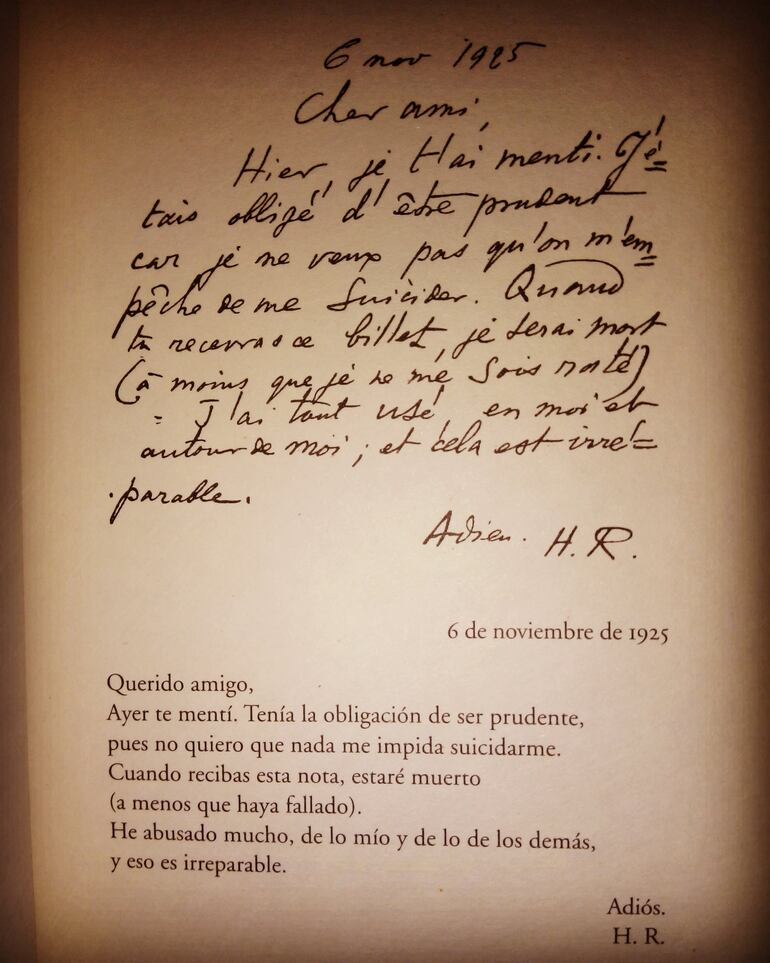 6 nov 1925
Cher ami,
Hier, je t'ai menti. J'é=
tais obligé d'être prudent
car je ne veux pas qu'on m'em=
pêche de me Suicider. Quand
tu recevras ce billet, je serai mort
(à moins que je ne me Sois raté)
= J'ai tout usé, en moi et
autour de moi ; et cela est irré=
parable.
Adieu. H. R.
6 de noviembre de 1925
Querido amigo,
Ayer te mentí. Tenía la obligación de ser prudente,
pues no quiero que nada me impida suicidarme.
Cuando recibas esta nota, estaré muerto
(a menos que haya fallado).
He abusado mucho, de lo mío y de lo de los demás,
y eso es irreparable.
Adiós.
H. R.